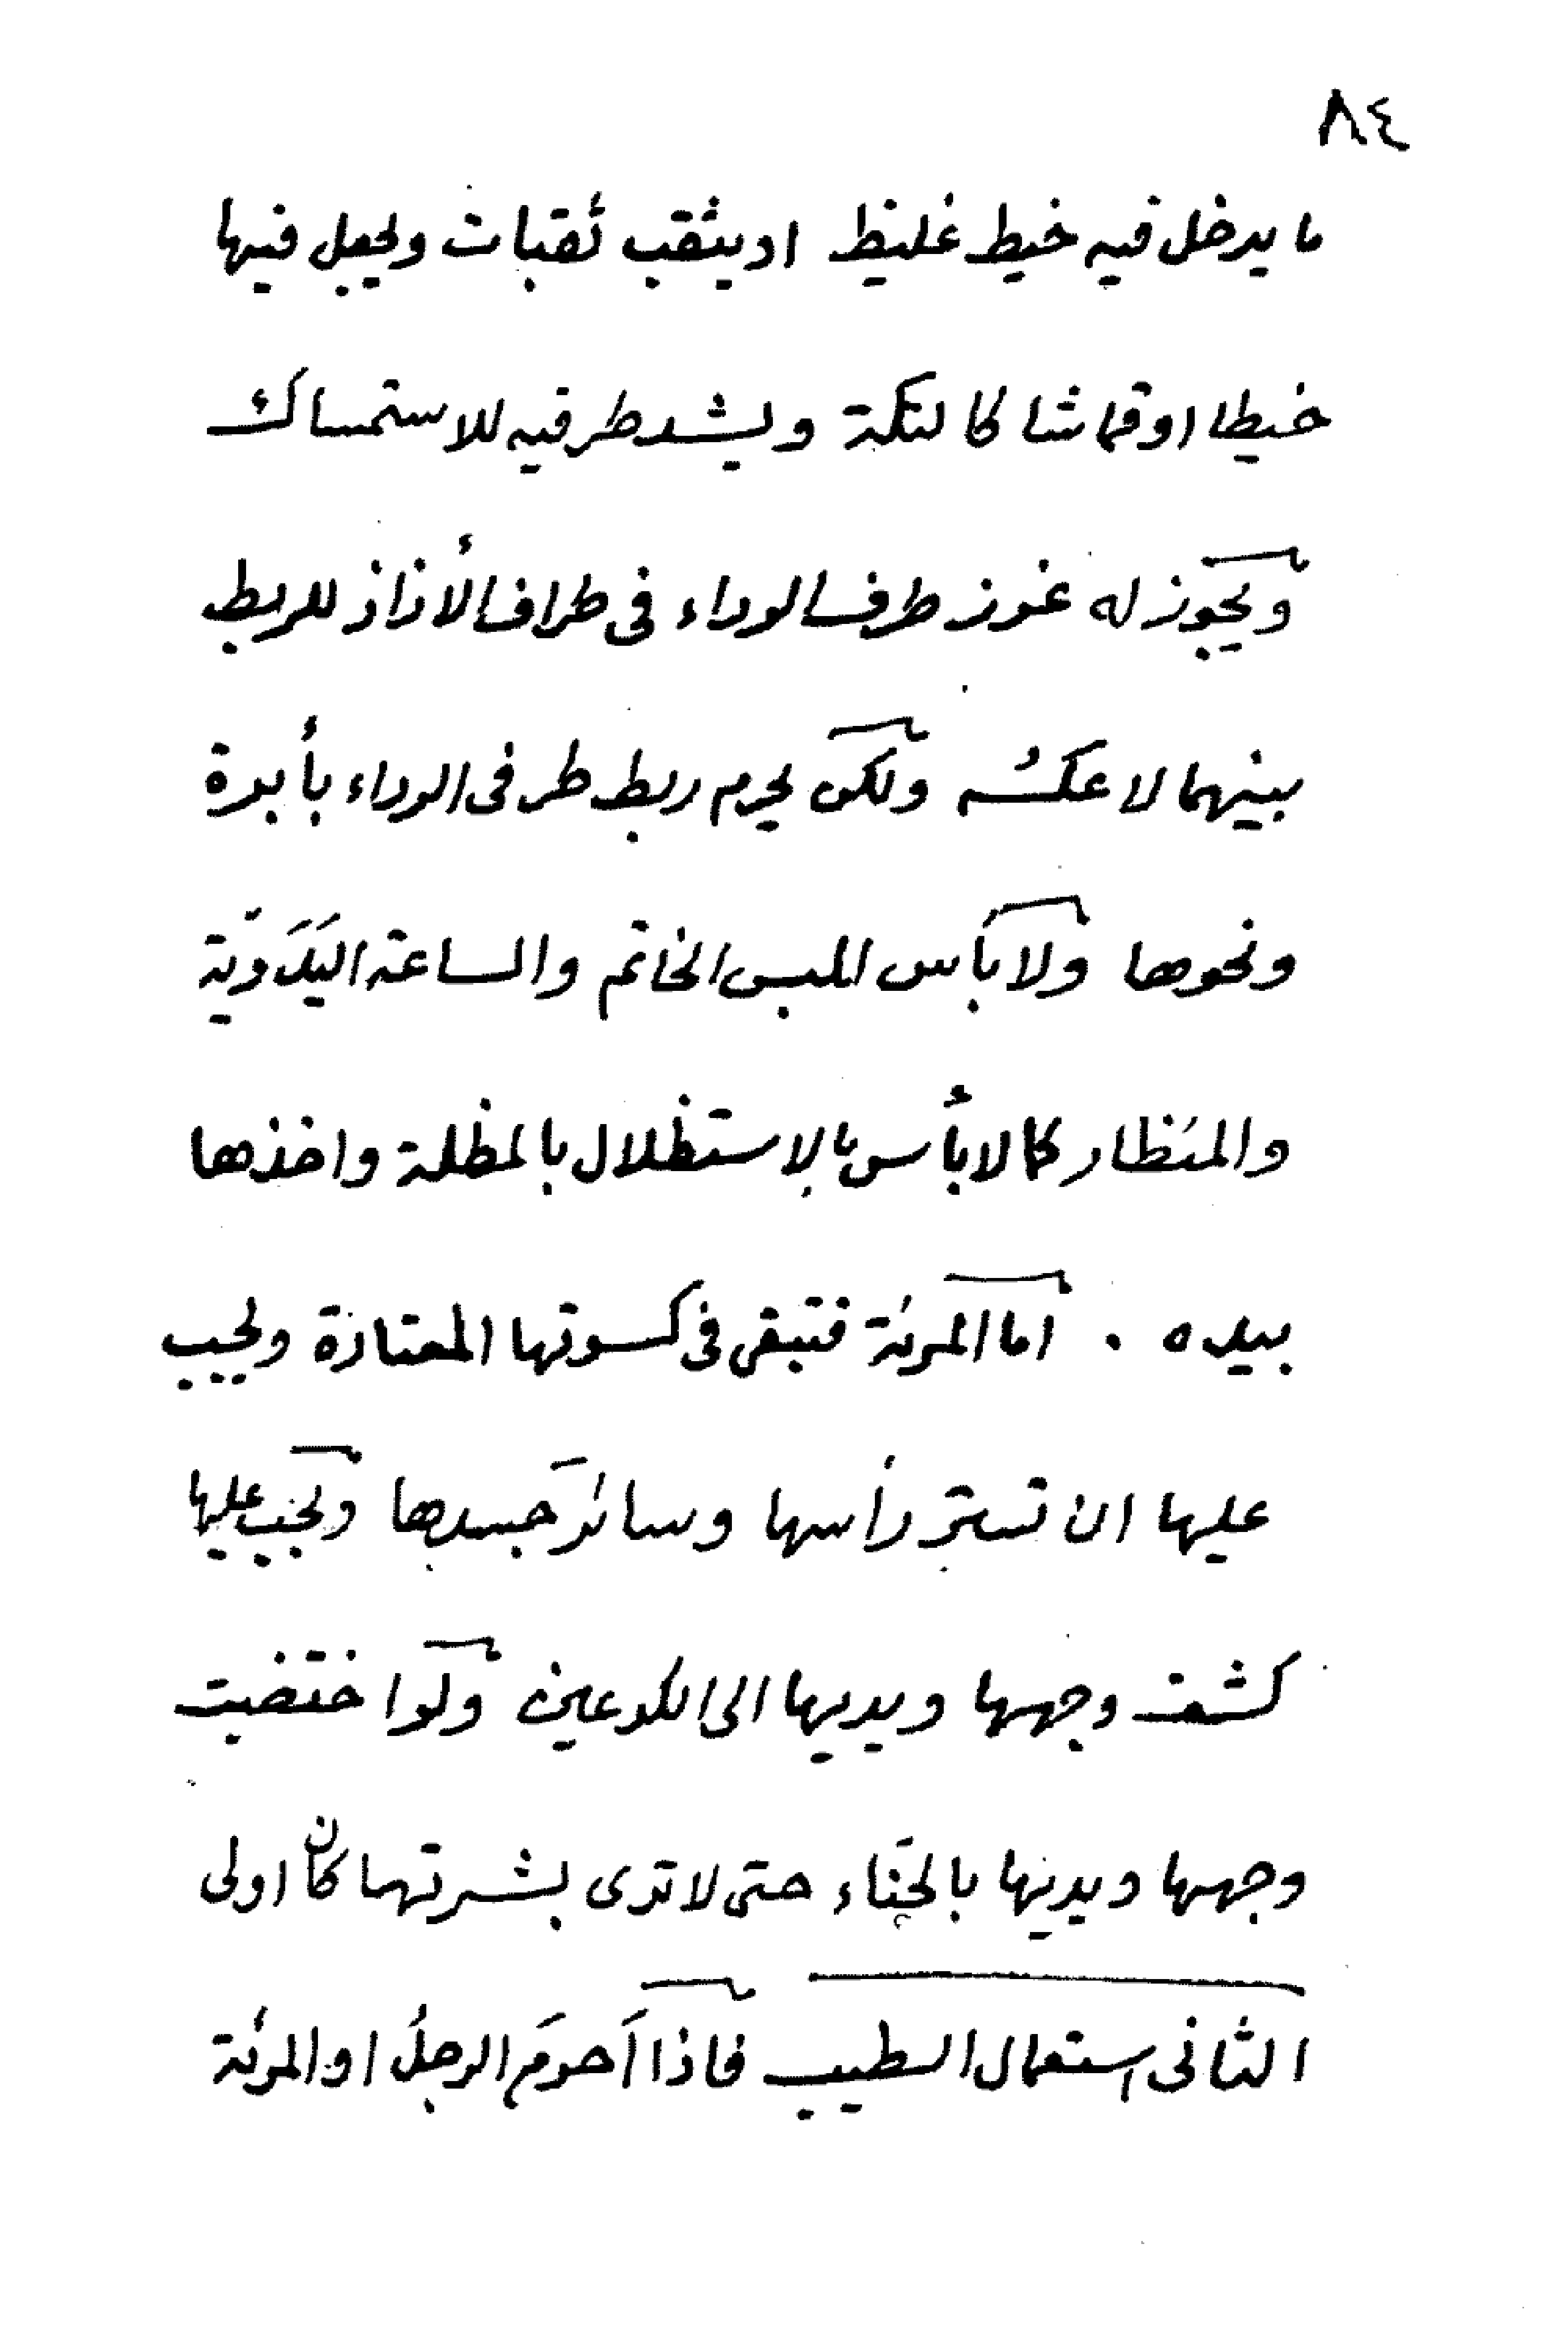 ٨٤
ما يدخل فيه خيط غليظ او يثقب ثقبات ويجعل فيها
خيطا او قماشا كالتكة ويشد طرفيه للاستمساك
ويجوز له غرز طرف الرداء في طراف الأزار للربط
بينهما لا عكسُه ولكن يحرم ربط طرفى الرداء بأبرة
ونحوها ولا بأس للبس الخاتم والساعة اليَدَويّة
والمنظار كما لا بأس بالاستظلال بالمظلة واخذها
بيده . اما المرئة فتبقى فى كسوتها المعتادة ويجب
عليها ان تستر رأسها وسائر جسدها ويجب عليها
كشف وجهها ويديها الى الكوعين ولو اختضبت
وجهها ويديها بالحِنّاء حتى لا ترى بشرتهما كان اولى
الثانى استعمال الطيب فاذا اَحرَم الرجلُ او المرئة